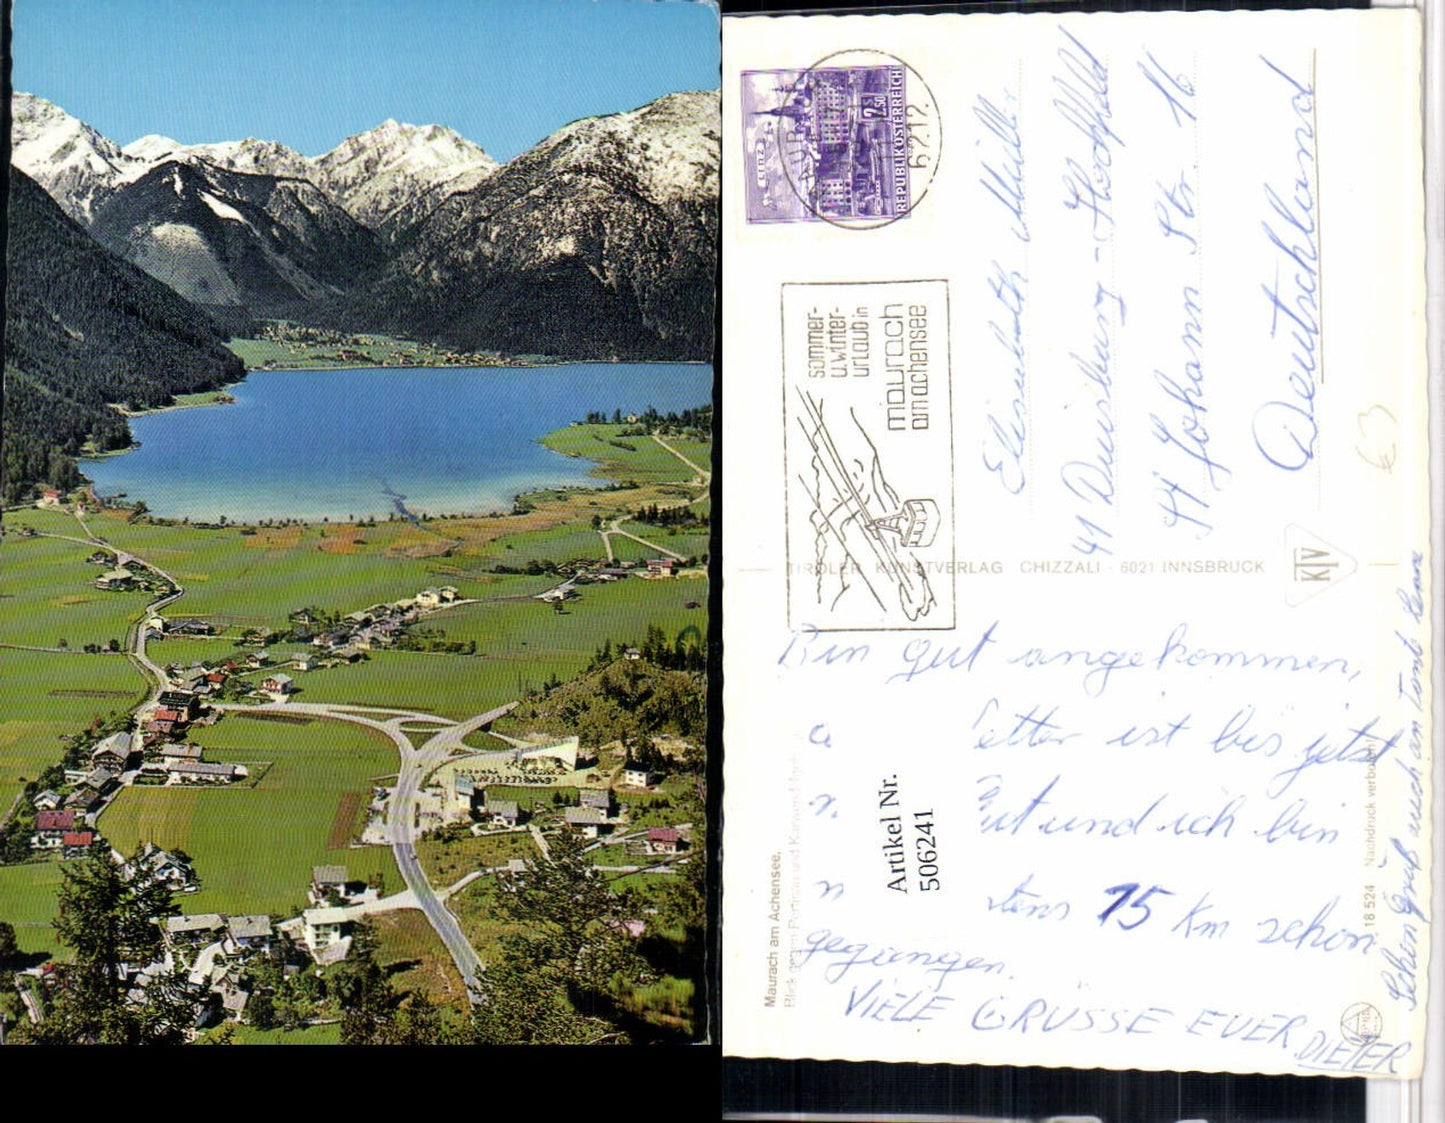 LINZ
2.50
S
REPUBLIK ÖSTERREICH
6212
sommer-
u.winter-
urlaub in
maurach
am achensee
Elisabeth Müller
41 Duisburg - Hochfeld
44 Johann Str. 16
Deutschland
€3
TIROLER KUNSTVERLAG CHIZZALI · 6021 INNSBRUCK
KTV
Bin gut angekommen,
etter ist bis jetzt
ut und ich bin
tens 15 Km schon
gegangen.
VIELE GRÜSSE EUER
DIETER
Schön Gruß auch an Tante Lena
Artikel Nr.
506241
Maurach am Achensee,
Blick gegen Pertisau und Karwendel
18 524 Nachdruck verboten